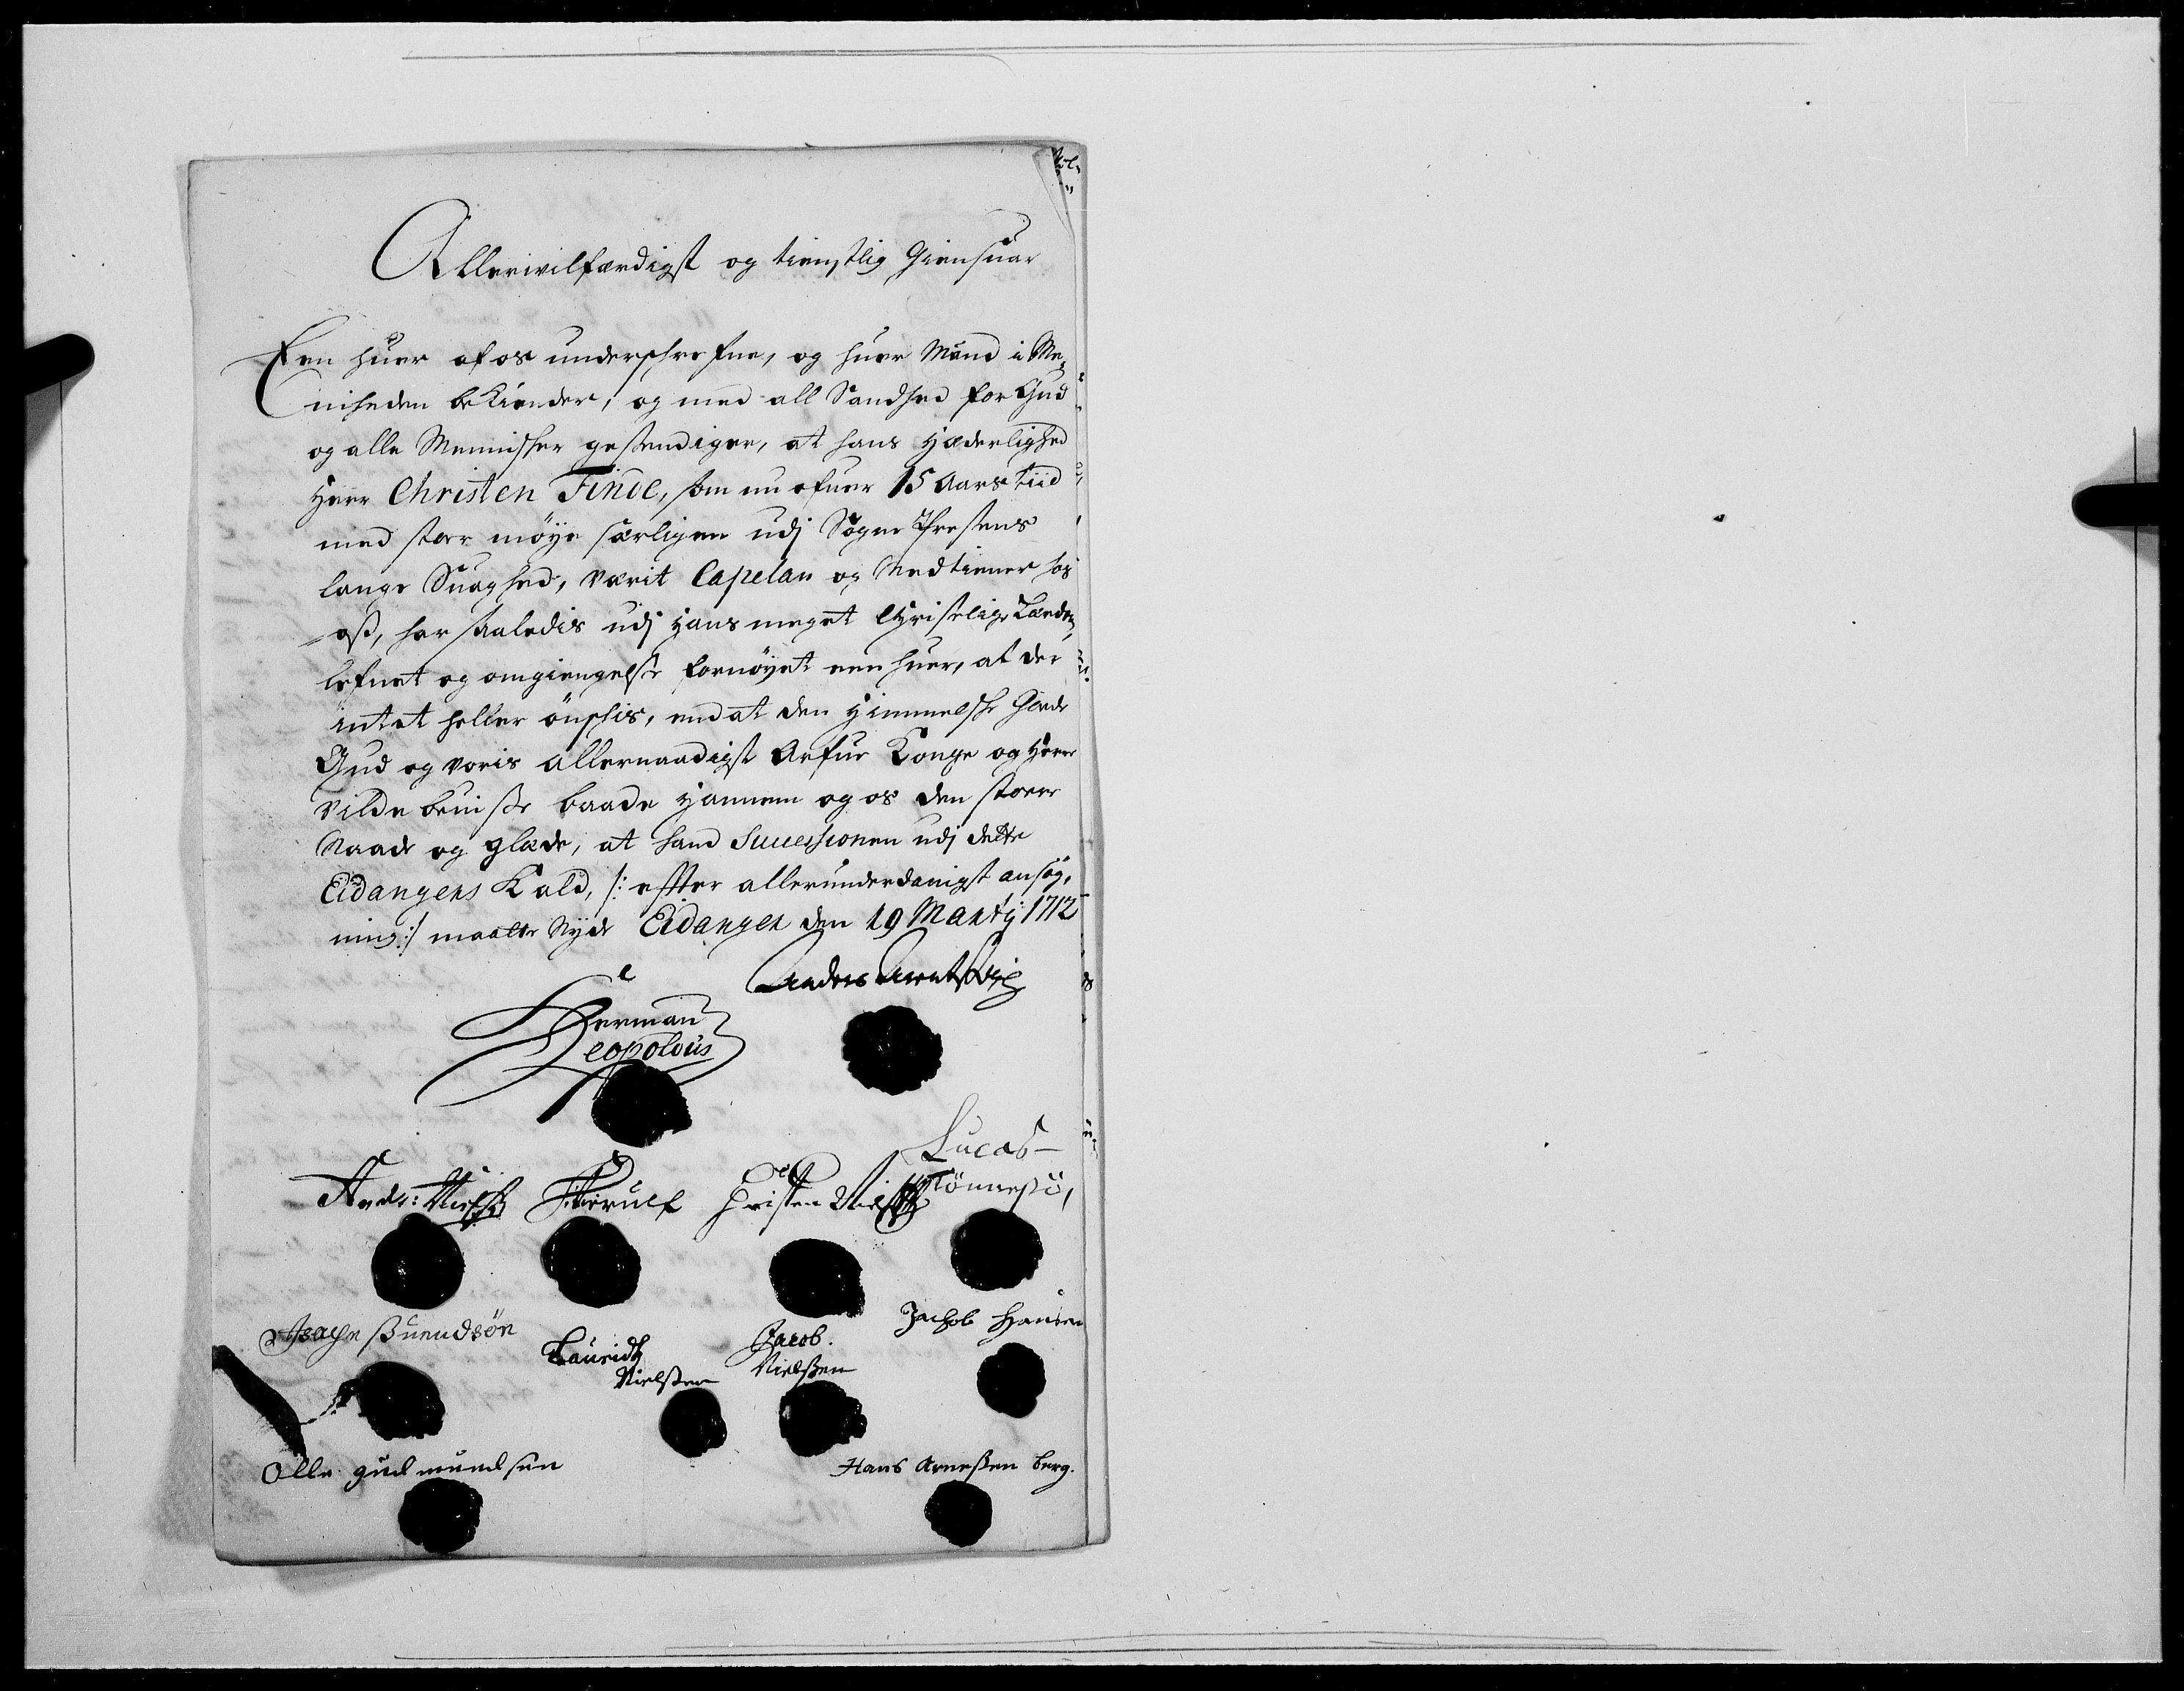 Allerwilfærdigst og tienstlig Giensuar
Een huer af os underschrefne, og huer Mand i Me,
nisheden bekiender, og med all Sandhed for Gud
og alle Mennisker gestendiger, at hans Hæderlighed
Herr Christen Finde, som nu ofuer 15 Aars tiid
med stoer møye særligen udj Sogne Prestens
lange Suaghed, værit Capelan og Medtiener hos
oss, har saaledis udj Hans meget Christelige Lærdom,
lefnet og omgiengelse fornøyet een huer, at der
intet heller ønschis, end at den Himmelske
Gud og voris allernaadigst Arfue Konge og Herre
vilde beuise baade Hannem og os den stoere
Naade og glæde, at hand Successionen udj dette
Eidangers Kald, /: efter allerunderdanigst ansøg,
ning :/ maatte Nyde Eidanger den 19 Martij 1712
Anders
Herman
Leopoldus
Lucas
Anders: Nielsøn Fierulf Christen Nielsøn Tönnesø,
Aschge Suendsøn
Jachob Hansen
Lauridtz
Nielsen
Jacob.
Nielssen
Olle gudmundsen
Hans Arnessen berg.